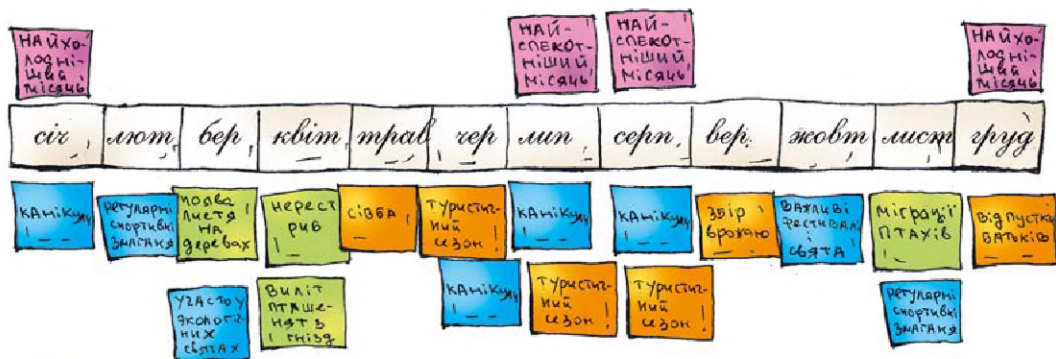 НАЙХО-
ЛОДНІ-
ШИЙ
МІСЯЦЬ
НАЙ-
СПЕКОТ-
НІШИЙ
МІСЯЦЬ
НАЙ-
СПЕКОТ-
НІШИЙ
МІСЯЦЬ
НАЙХО-
ЛОДНІ-
ШИЙ
МІСЯЦЬ
січ лют бер квіт трав чер лип серп вер жовт лист груд
КАНІКУЛИ
РЕГУЛЯРНІ
СПОРТИВНІ
ЗМАГАНЯ
ПОЯВА
ЛИСТЯ
НА
ДЕРЕВАХ
НЕРЕСТ
РИБ
СІВБА
ТУРИСТИЧ-
НИЙ
СЕЗОН
КАНІКУЛИ
КАНІКУЛИ
ЗБІР
ВРОЖАЮ
ВАЖЛИВІ
ФЕСТИВАЛІ
І
СВЯТА
МІГРАЦІЇ
ПТАХІВ
ВІДПУСТКА
БАТЬКІВ
УЧАСТЬ У
ЕКОЛОГІЧ-
НИХ
СВЯТАХ
ВИЛІТ
ПТАШЕ-
НЯТ З
ГНІЗД
КАНІКУЛИ
ТУРИСТИЧ-
НИЙ
СЕЗОН
ТУРИСТИЧ-
НИЙ
СЕЗОН
РЕГУЛЯРНІ
СПОРТИВНІ
ЗМАГАНЯ